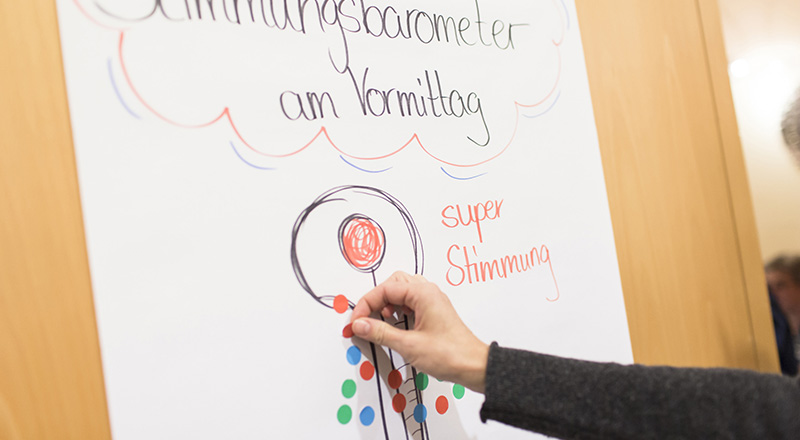 Stimmungsbarometer
am Vormittag
super
Stimmung